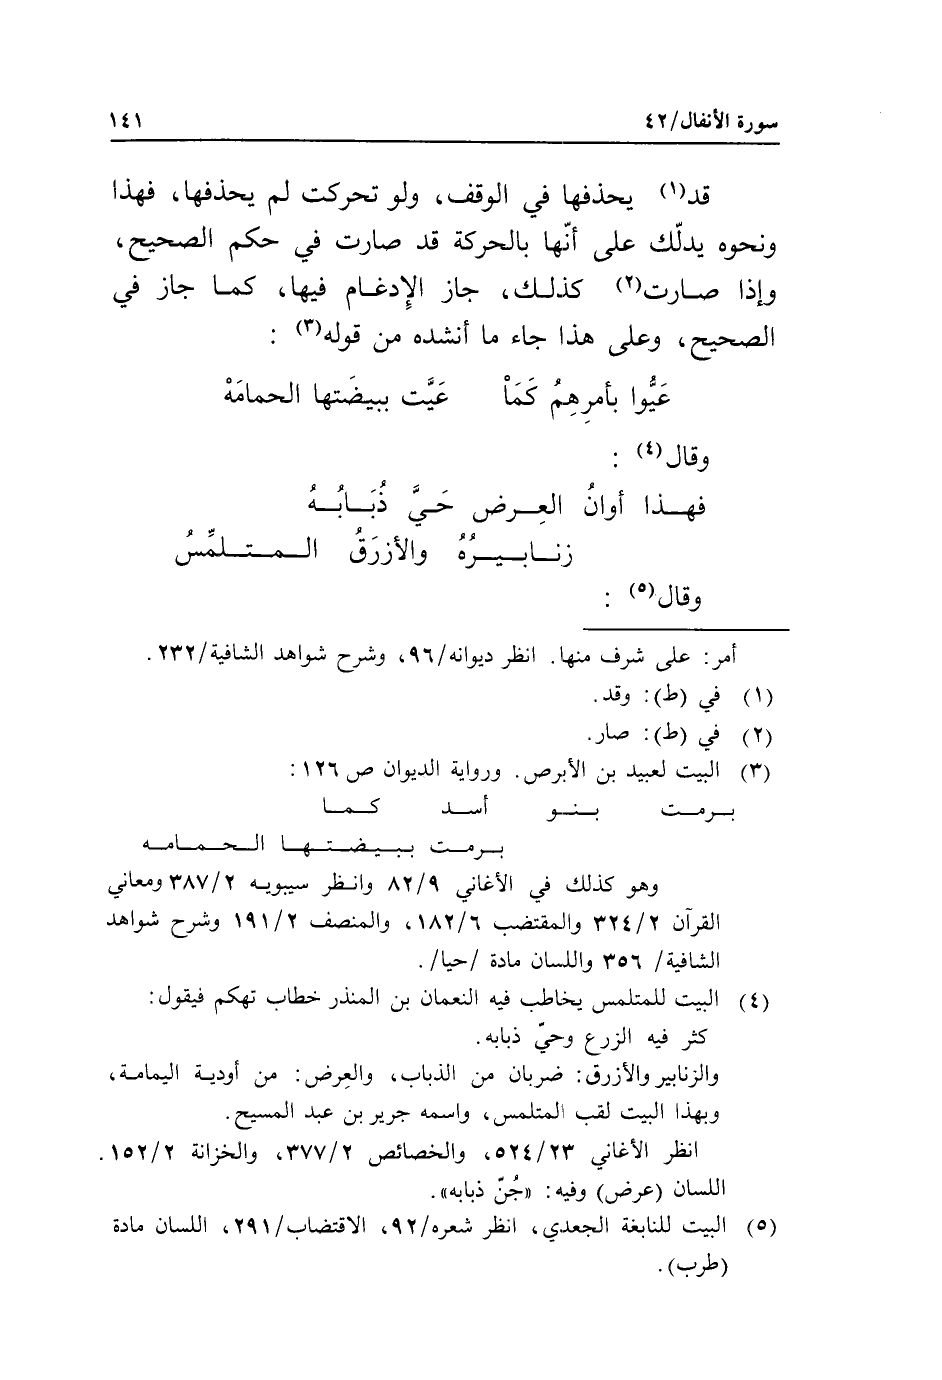 سورة الأنفال/٤٢ ١٤١
قد(١) يحذفها في الوقف، ولو تحركت لم يحذفها، فهذا
ونحوه يدلّك على أنّها بالحركة قد صارت في حكم الصحيح،
وإذا صارت(٢) كذلك، جاز الإدغام فيها، كما جاز في
الصحيح، وعلى هذا جاء ما أنشده من قوله(٣) :
عَيُّوا بأمرِهِمُ كَمَاْ عَيَّت ببيضَتها الحمامَهْ
وقال(٤) :
فهذا أوانُ العِرض حَيَّ ذُبَابُهُ
زنابيرُهُ والأزرَقُ المتلمِّسُ
وقال(٥) :
أمر: على شرف منها. انظر ديوانه/٩٦، وشرح شواهد الشافية/٢٣٢.
(١) في (ط): وقد.
(٢) في (ط): صار.
(٣) البيت لعبيد بن الأبرص. ورواية الديوان ص ١٢٦:
برمت بنو أسد كما
برمت ببيضتها الحمامه
وهو كذلك في الأغاني ٨٢/٩ وانظر سيبويه ٣٨٧/٢ ومعاني
القرآن ٣٢٤/٢ والمقتضب ١٨٢/٦، والمنصف ١٩١/٢ وشرح شواهد
الشافية/ ٣٥٦ واللسان مادة /حيا/.
(٤) البيت للمتلمس يخاطب فيه النعمان بن المنذر خطاب تهكم فيقول:
كثر فيه الزرع وحيّ ذبابه.
والزنابير والأزرق: ضربان من الذباب، والعِرض: من أودية اليمامة،
وبهذا البيت لقب المتلمس، واسمه جرير بن عبد المسيح.
انظر الأغاني ٥٢٤/٢٣، والخصائص ٣٧٧/٢، والخزانة ١٥٢/٢.
اللسان (عرض) وفيه: «جُنّ ذبابه».
(٥) البيت للنابغة الجعدي، انظر شعره/٩٢، الاقتضاب/٢٩١، اللسان مادة
(طرب).